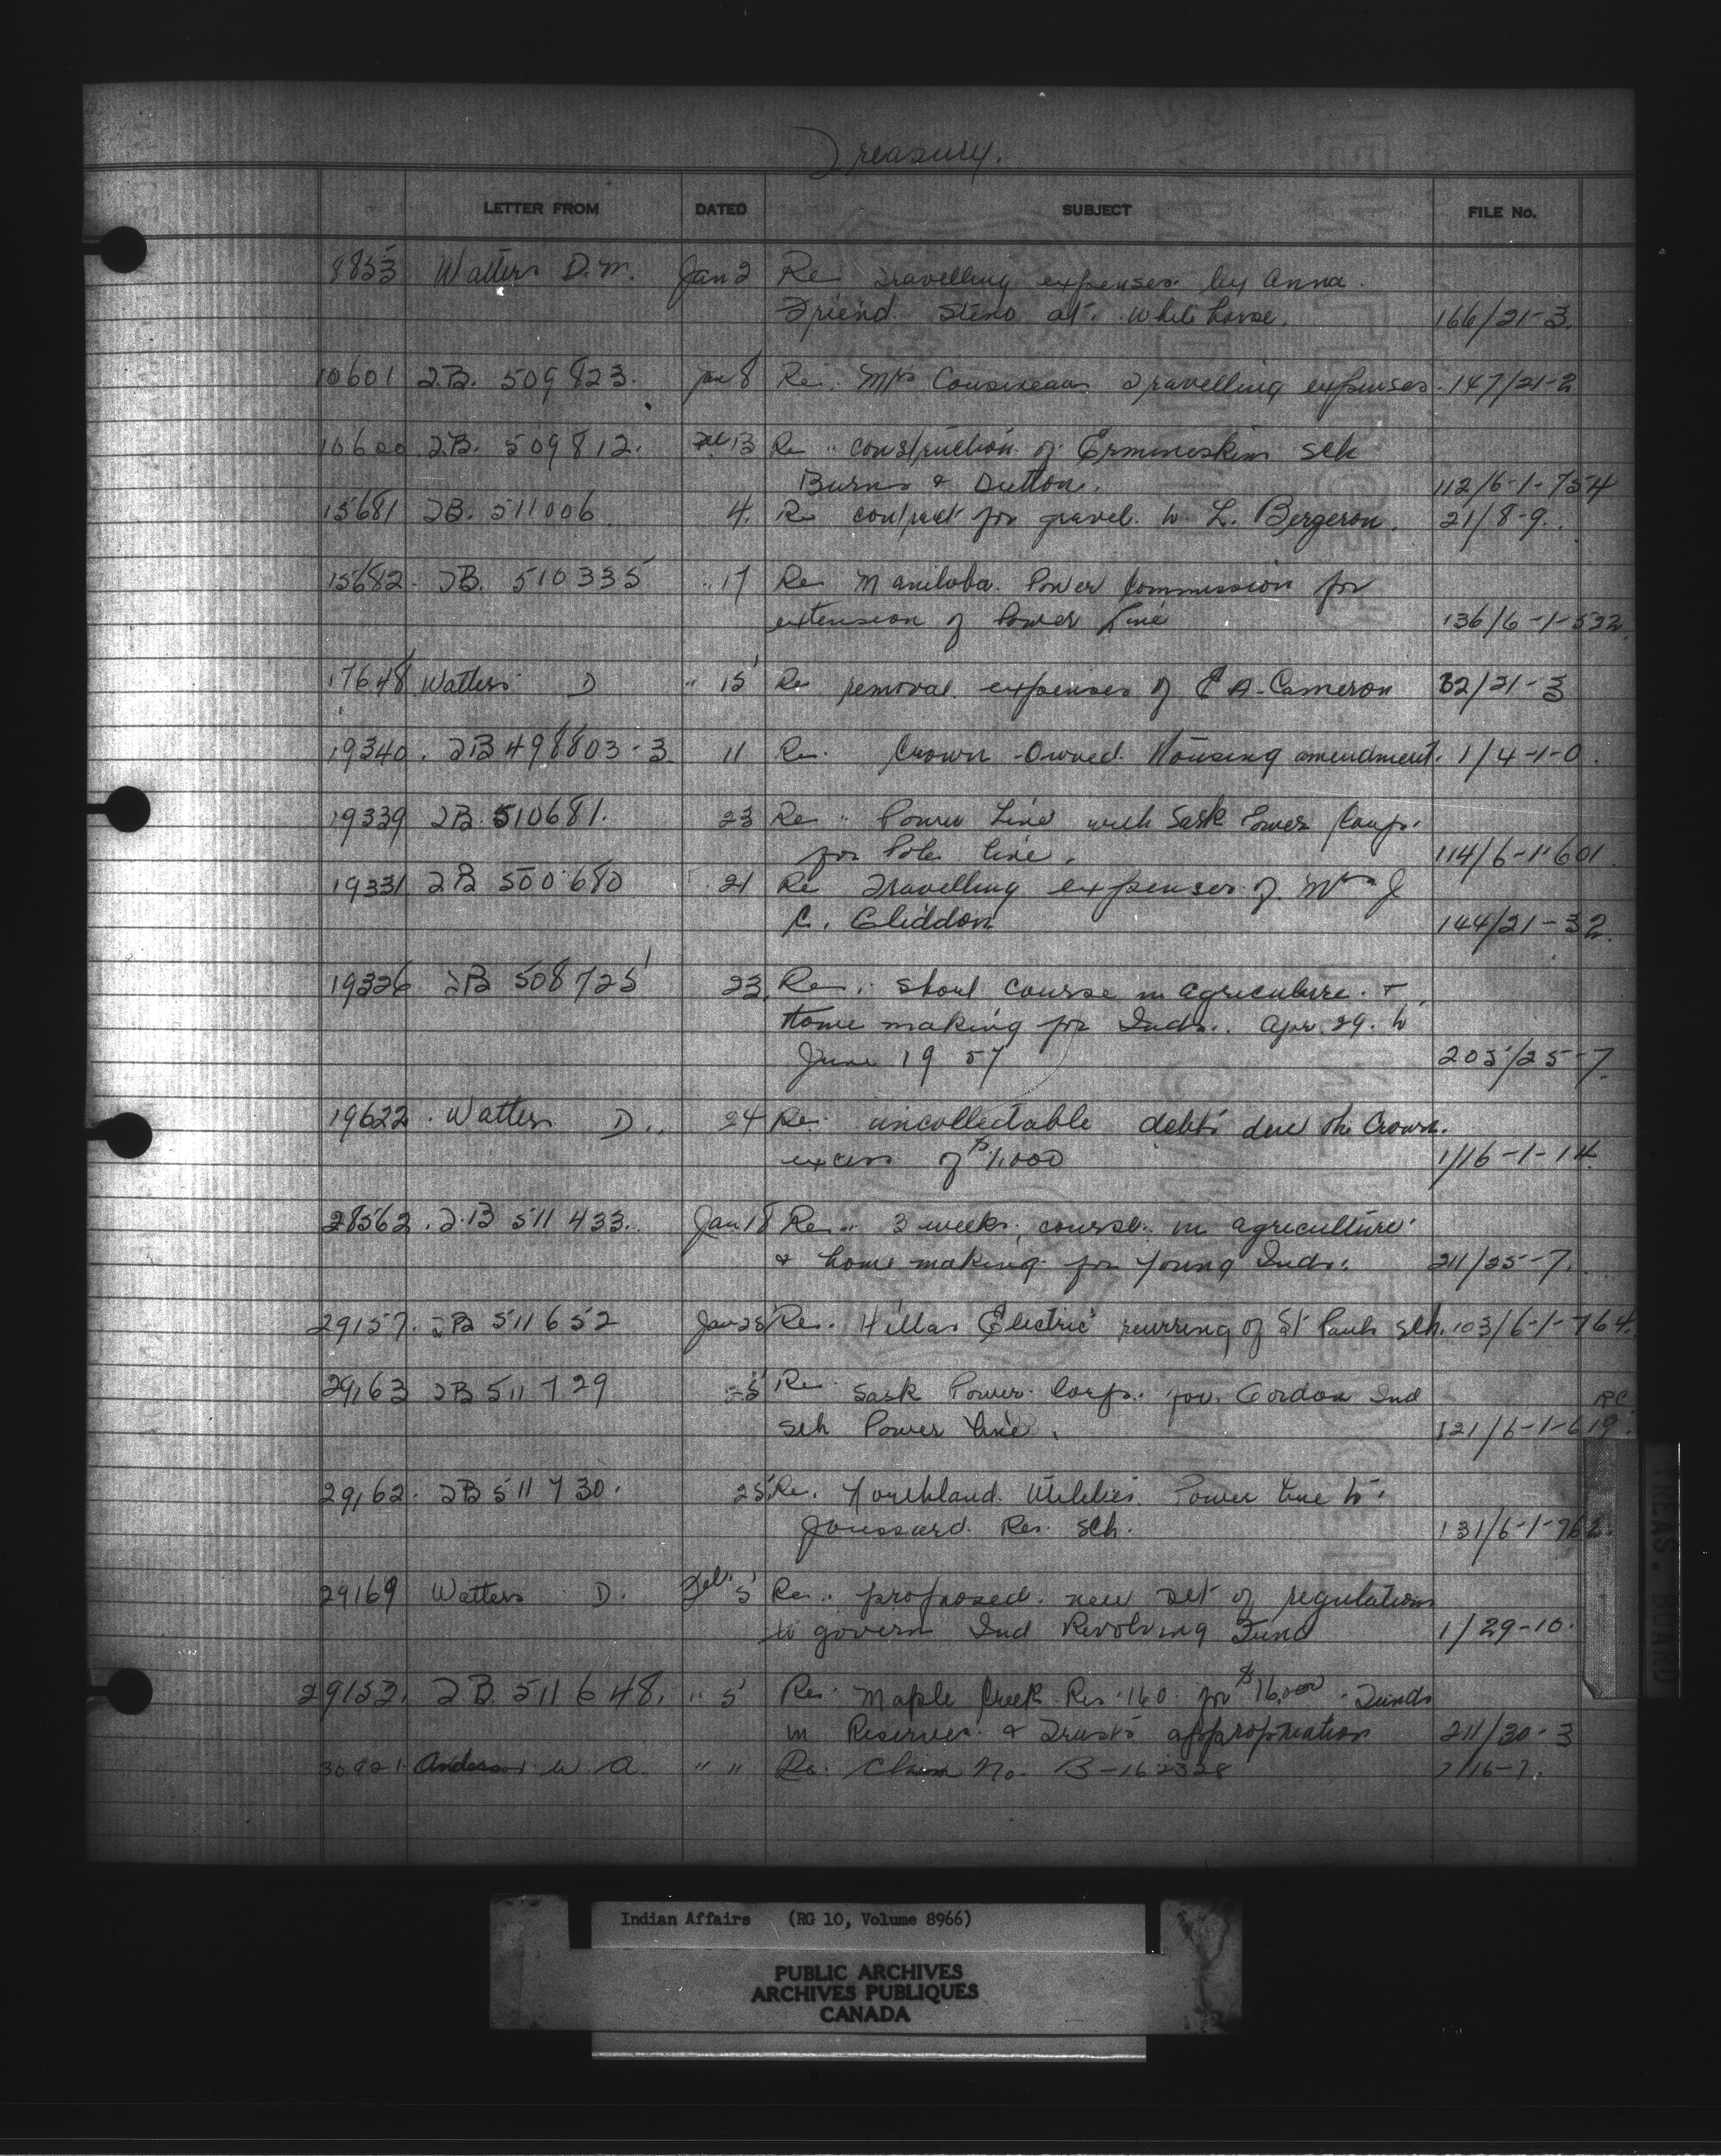 Treasury.
LETTER FROM DATED SUBJECT FILE No.
8853 Watters D.M. Jan 2 Re Travelling expenses by Anna
Friend Steno at Whitehorse. 166/21-3.
10601 T.B. 509823. Jan 8 Re. Mrs Cousineau Travelling expenses. 147/21-2
10600 T.B. 509812. 13 Re " construction of Ermineskin Sch
Burns & Dutton. 112/6-1-754
15681 T.B. 511006 4. Re contract for gravel to L. Bergeron. 21/8-9.
15682. T.B. 510335 " 17 Re Manitoba Power Commission for
extension of Power Line 136/6-1-532
17648 Watters D " 15 Re removal expenses of E A. Cameron 32/21-3
19340. T.B 498803-3 11 Re. Crown-Owned Housing amendment. 1/4-1-0.
19339 T.B. 510681. 23 Re " Power Line with Sask Power Corp.
for Pole line. 114/6-1-601.
19331 T.B 500680 21 Re Travelling expenses of Mrs J
C. Gliddon 144/21-32.
19326 T.B 508725 23. Re. Short course in agriculture &
Home making for Inds. Apr. 29. to
June 19 57 205/25-7.
19622. Watters D. 24 Re. uncollectable debts due the Crown.
excess of $1,000 1/16-1-14.
28562. T.B 511433. Jan 18 Re. " 3 weeks course in agriculture
& home making for young Inds. 211/25-7.
29157. T.B 511652 Jan 25 Re. Electric rewiring of St Pauls Sch. 103/6-1-764.
29163 T.B 511729 25 Re. Sask Power Corp. for Gordon Ind RC
Sch Power line. 121/6-1-619.
29162. T.B 511730. 25 Re. Northland Utilities Power line to
Joussard Res. Sch. 131/6-1-76
29169 Watters D. Feb. 5 Re. proposed new set of regulations
to govern Ind Revolving Fund 1/29-10.
29152. T.B. 511648. " 5 Re. Maple Creek Res. 160 for $16,000 Funds
in Reserves & Trusts appropriation 211/30-3
30921. Anderson W A. " " Re. Claim No. B-162328 1/16-7.
TREAS. BOARD
Indian Affairs (RG 10, Volume 8966)
PUBLIC ARCHIVES
ARCHIVES PUBLIQUES
CANADA